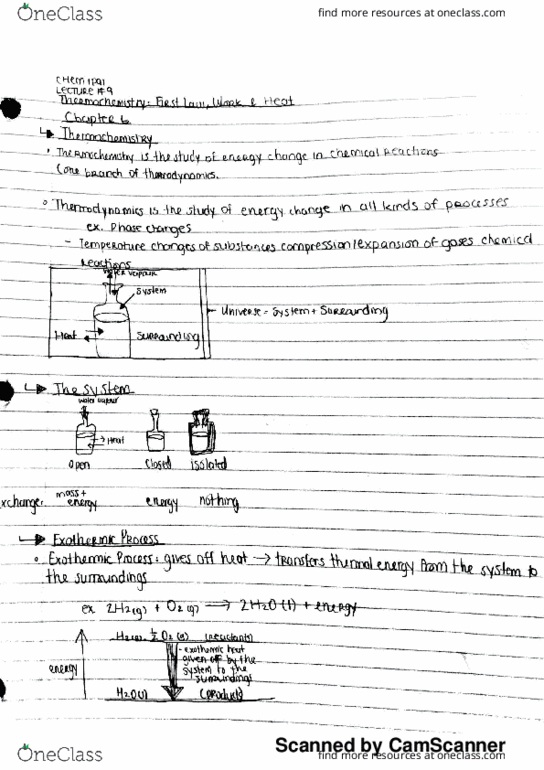 OneClass
find more resources at oneclass.com
CHEM 1P91
LECTURE #9
Thermochemistry: First Law, Work & Heat
Chapter 6
Thermochemistry
• Thermochemistry is the study of energy change in chemical reactions
(one branch of thermodynamics.
• Thermodynamics is the study of energy change in all kinds of processes
ex. Phase changes
- Temperature changes of substances compression/expansion of gases chemical
reactions
water vapour
System
Universe = System + Surrounding
Heat
Surrounding
The System
water vapour
Heat
Open
Closed
isolated
xchange:
mass +
energy
energy
nothing
Exothermic Process
• Exothermic Process: gives off heat → transfers thermal energy from the system to
the surroundings
ex 2H2(g) + O2(g) → 2H2O(l) + energy
energy
½O2 (reactants)
- exothermic heat
given off by the
system to the
surroundings
H2O(l)
(product)
Scanned by CamScanner
OneClass
find more resources at oneclass.com